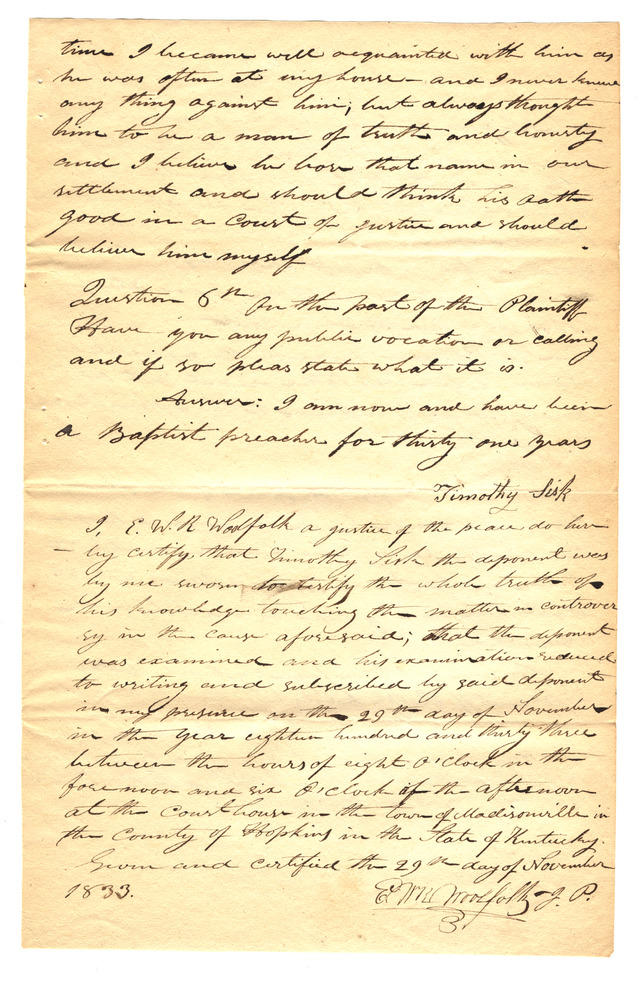 time I became well acquainted with him as
he was often at my house – and I never knew
any thing against him; but always thought
him to be a man of truth and honesty
and I believe he bore that name in our
settlement and should think his oath
good in a court of justice and should
believe him myself
Question 6th On the part of the Plaintiff
Have you any public vocation or calling
and if so pleas state what it is.
Answer: I am now and have been
a Baptist preacher for thirty one years
Timothy Sisk
I, E. W. R Woolfolk a justice of the peace do here
– by certify that Timothy Sisk the deponent was
by me sworn to testify the whole truth of
his knowledge touching the matter in controver
sy in the cause aforesaid; that the deponent
was examined and his examination reduced
to writing and subscribed by said deponent
in my presence on the 29th day of November
in the year eighteen hundred and thirty three
between the hours of eight O'clock in the
fore noon and six O'clock of the afternoon
at the court house in the town of Madisonville in
the County of Hopkins in the State of Kentucky.
Given and certified the 29th day of November
1833. E W R Woolfolk J. P.